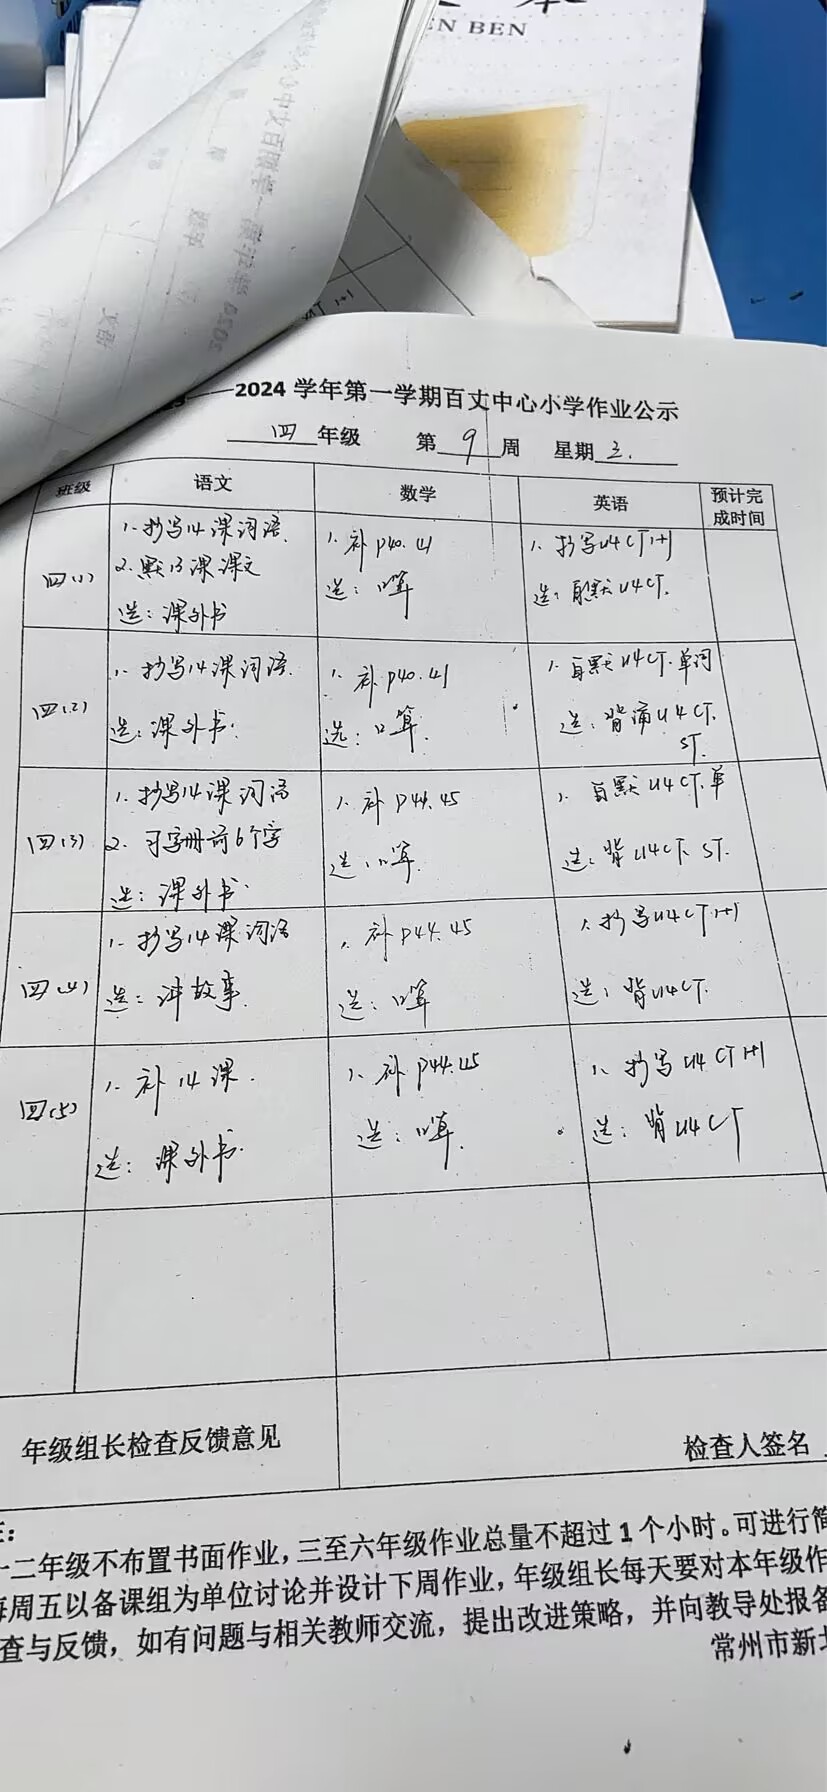 EN BEN
2024 学年第一学期百丈中心小学作业公示
四 年级 第 9 周 星期 三.
班级 语文 数学 英语 预计完成时间
四(1)
1. 抄写14课词语.
2. 默13课课文
选: 课外书
1. 补 P40. 41
选: 口算
1. 抄写U4 CT 1+1
选: 自默U4CT.
四(2)
1. 抄写14课词语.
选: 课外书.
1. 补 P40. 41
选: 口算.
1. 自默U4CT. 单词
选: 背诵U4CT.
ST.
四(3)
1. 抄写14课词语
2. 习字册前6个字
选: 课外书.
1. 补 P44. 45
选: 口算.
1. 自默U4CT. 单
选: 背U4CT. ST.
四(4)
1. 抄写14课词语
选: 讲故事.
1. 补P44. 45
选: 口算
1. 抄写U4CT 1+1
选: 背U4CT.
四(5)
1. 补14课.
选: 课外书.
1. 补P44. 45
选: 口算.
1. 抄写U4 CT 1+1
选: 背U4CT
年级组长检查反馈意见
检查人签名
二年级不布置书面作业,三至六年级作业总量不超过1个小时。可进行简
每周五以备课组为单位讨论并设计下周作业,年级组长每天要对本年级作
查与反馈,如有问题与相关教师交流,提出改进策略,并向教导处报备
常州市新北